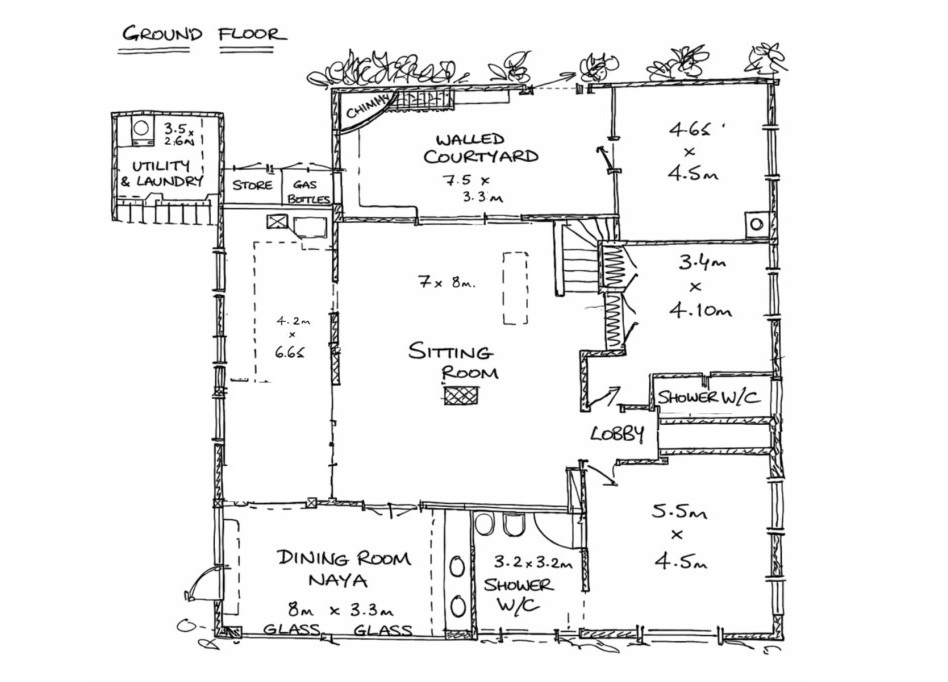 GROUND FLOOR
CHIMNY
3.5 x
2.6m
UTILITY
& LAUNDRY
STORE
GAS
BOTTLES
WALLED
COURTYARD
7.5 x
3.3m
4.65
x
4.5m
7 x 8m.
3.4m
x
4.10m
4.2m
x
6.65
SITTING
ROOM
SHOWER W/C
LOBBY
5.5m
x
4.5m
DINING ROOM
NAYA
8m x 3.3m
GLASS GLASS
3.2 x 3.2m
SHOWER
W/C